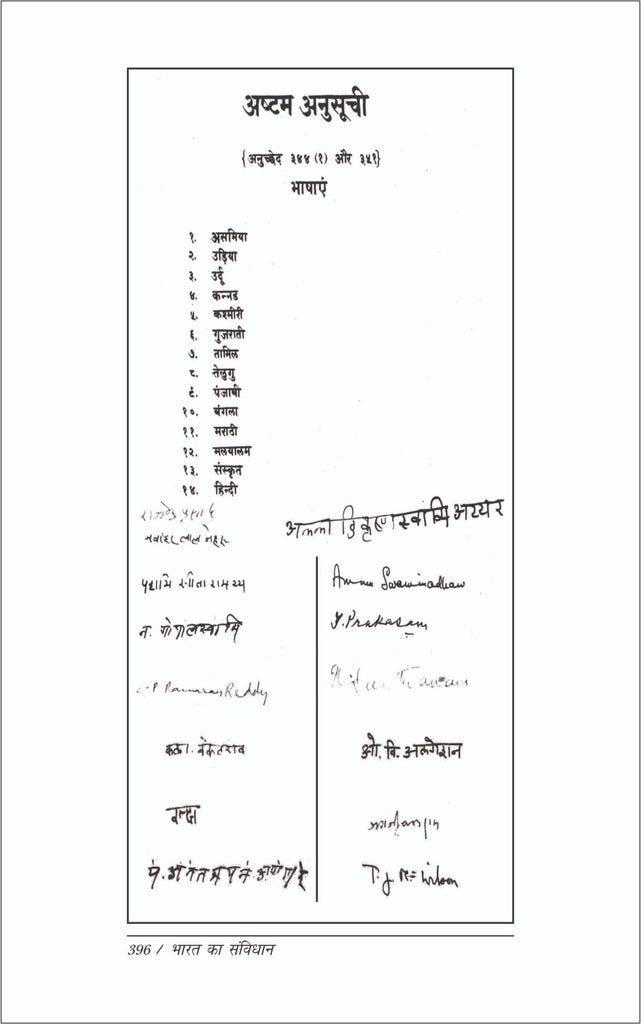 अष्टम अनुसूची
{अनुच्छेद ३४४ (१) और ३५१}
भाषाएं
१. असमिया
२. उड़िया
३. उर्दू
४. कन्नड
५. कश्मीरी
६. गुजराती
७. तामिल
८. तेलुगु
९. पंजाबी
१०. बंगला
११. मराठी
१२. मलयालम
१३. संस्कृत
१४. हिन्दी
राजेन्द्र प्रसाद
जवाहर लाल नेहरू
कृष्णस्वामि अय्यर
पट्टाभि सीतारामय्य
Ammu Swaminadhan
न. गोपालस्वामि
T. Prakasam
Reddy
कला. वेंकटराव
ओ. वि. अलगेशन
396 / भारत का संविधान